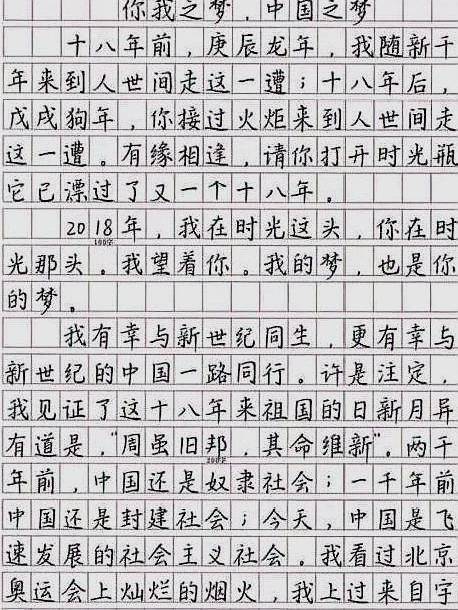 你我之梦，中国之梦
十八年前，庚辰龙年，我随新千
年来到人世间走这一遭；十八年后，
戊戌狗年，你接过火炬来到人世间走
这一遭。有缘相逢，请你打开时光瓶
它已漂过了又一个十八年。
2018年，我在时光这头，你在时
100字
光那头。我望着你。我的梦，也是你
的梦。
我有幸与新世纪同生，更有幸与
新世纪的中国一路同行。许是注定，
我见证了这十八年来祖国的日新月异
有道是，“周虽旧邦，其命维新”。两千
200字
年前，中国还是奴隶社会；一千年前
中国还是封建社会；今天，中国是飞
速发展的社会主义社会。我看过北京
奥运会上灿烂的烟火，我上过来自宇